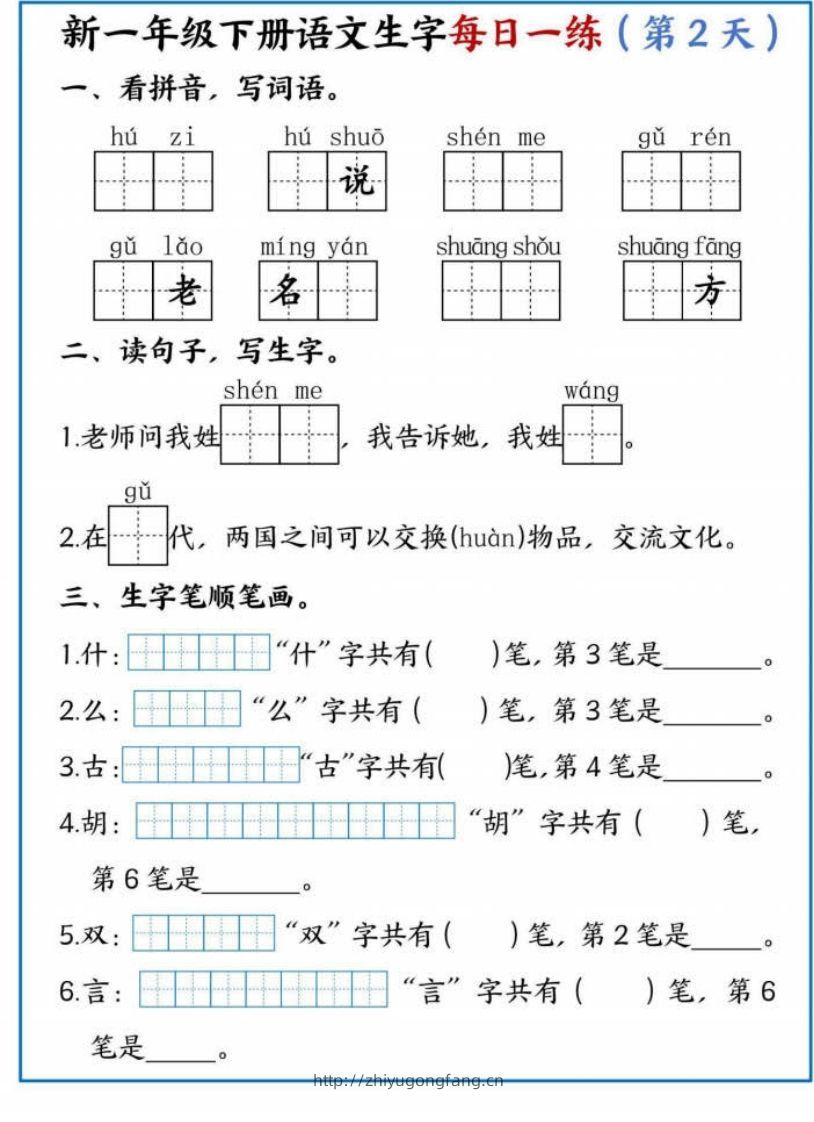 新一年级下册语文生字每日一练（第2天）
一、看拼音，写词语。
hú zi hú shuō shén me gǔ rén
说
gǔ lǎo míng yán shuāng shǒu shuāng fāng
老 名 方
二、读句子，写生字。
shén me wáng
1.老师问我姓 ，我告诉她，我姓 。
gǔ
2.在 代，两国之间可以交换(huàn)物品，交流文化。
三、生字笔顺笔画。
1.什： “什”字共有( )笔，第3笔是_______。
2.么： “么”字共有（ ）笔，第3笔是_______。
3.古： “古”字共有( )笔，第4笔是_______。
4.胡： “胡”字共有（ ）笔，
第6笔是_______。
5.双： “双”字共有（ ）笔，第2笔是_____。
6.言： “言”字共有（ ）笔，第6
笔是_____。
http://zhiyugongfang.cn